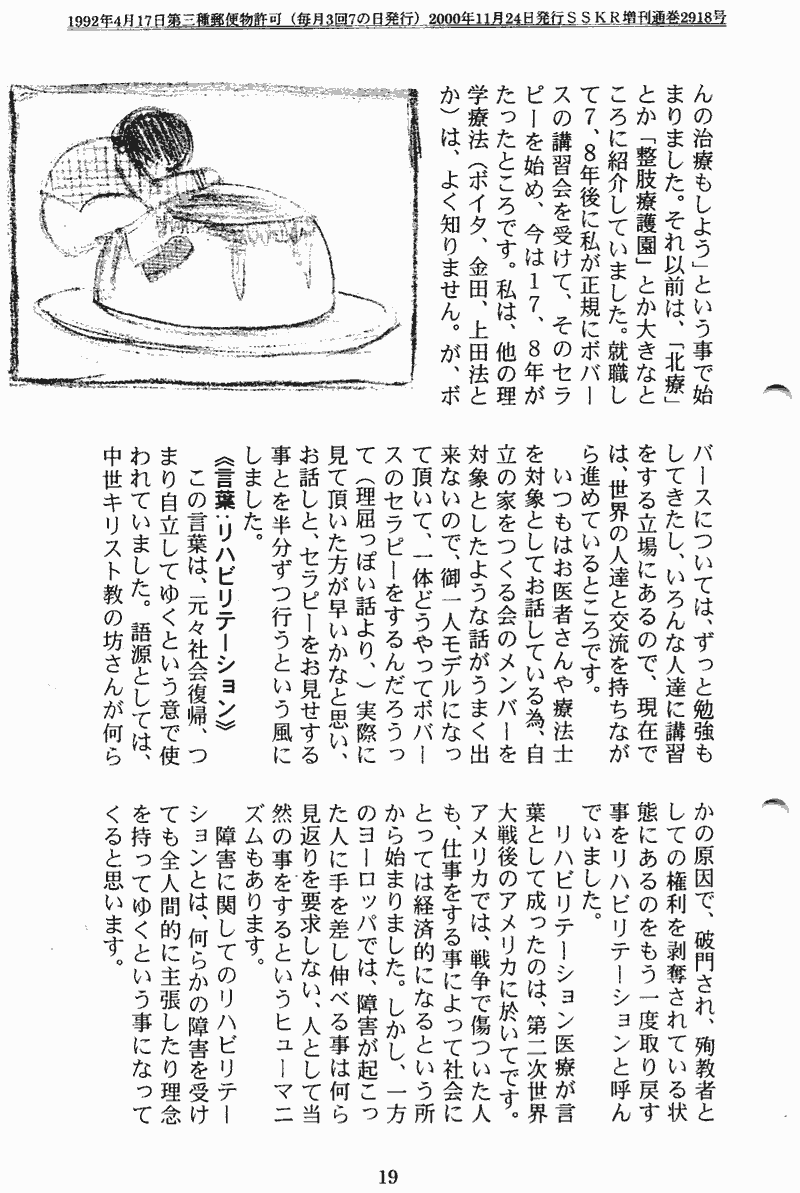 1992年4月17日第三種郵便物許可（毎月3回7の日発行）2000年11月24日発行ＳＳＫＲ増刊通巻2918号
んの治療もしよう」という事で始
まりました。それ以前は、「北療」
とか「整肢療護園」とか大きなと
ころに紹介していました。就職し
て７、８年後に私が正規にボバー
スの講習会を受けて、そのセラ
ピーを始め、今は１７、８年が
たったところです。私は、他の理
学療法（ボイタ、金田、上田法と
か）は、よく知りません。が、ボ
バースについては、ずっと勉強も
してきたし、いろんな人達に講習
をする立場にあるので、現在で
は、世界の人達と交流を持ちなが
ら進めているところです。
いつもはお医者さんや療法士
を対象としてお話している為、自
立の家をつくる会のメンバーを
対象としたような話がうまく出
来ないので、御一人モデルになっ
て頂いて、一体どうやってボバー
スのセラピーをするんだろうっ
て（理屈っぽい話より、）実際に
見て頂いた方が早いかなと思い、
お話しと、セラピーをお見せする
事とを半分ずつ行うという風に
しました。
《言葉：リハビリテーション》
この言葉は、元々社会復帰、つ
まり自立してゆくという意で使
われていました。語源としては、
中世キリスト教の坊さんが何ら
かの原因で、破門され、殉教者と
しての権利を剥奪されている状
態にあるのをもう一度取り戻す
事をリハビリテーションと呼ん
でいました。
リハビリテーション医療が言
葉として成ったのは、第二次世界
大戦後のアメリカに於いてです。
アメリカでは、戦争で傷ついた人
も、仕事をする事によって社会に
とっては経済的になるという所
から始まりました。しかし、一方
のヨーロッパでは、障害が起こっ
た人に手を差し伸べる事は何ら
見返りを要求しない、人として当
然の事をするというヒューマニ
ズムもあります。
障害に関してのリハビリテー
ションとは、何らかの障害を受け
ても全人間的に主張したり理念
を持ってゆくという事になって
くると思います。
19